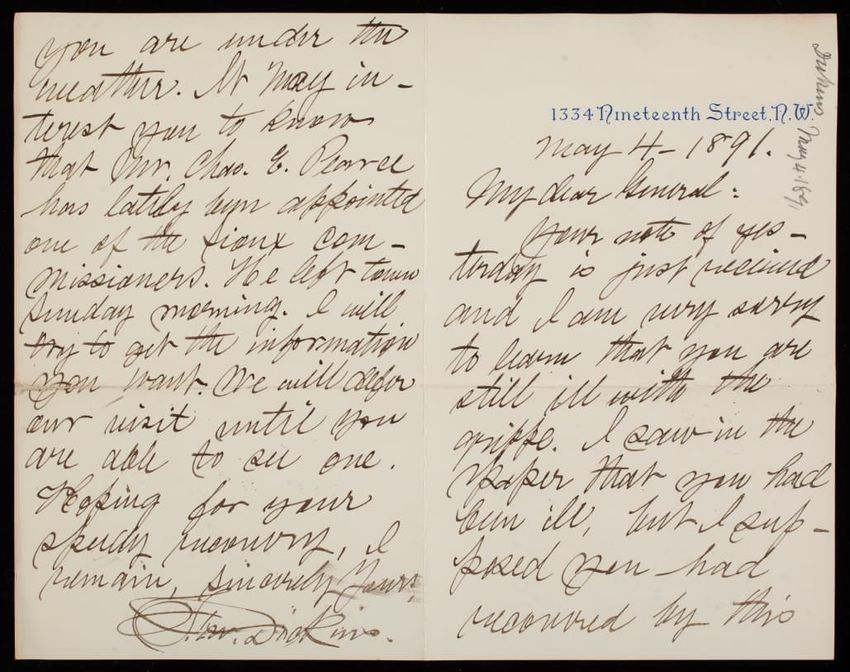 1334 Nineteenth Street, N.W.
May 4 - 1891.
My dear General:
Your note of yes-
terday is just received
and I am very sorry
to learn that you are
still ill with the
grippe. I saw in the
paper that you had
been ill, but I sup-
posed you had
recovered by this
you are under the
weather. It may in-
terest you to know
that Mr. Chas. E. Pearce
has lately been appointed
one of the Sioux Com-
missioners. He left town
Sunday morning. I will
try to get the information
you want. We will defer
our visit until you
are able to see one.
Hoping for your
speedy recovery, I
remain, Sincerely Yours,
Dickins.
May 4. 1891